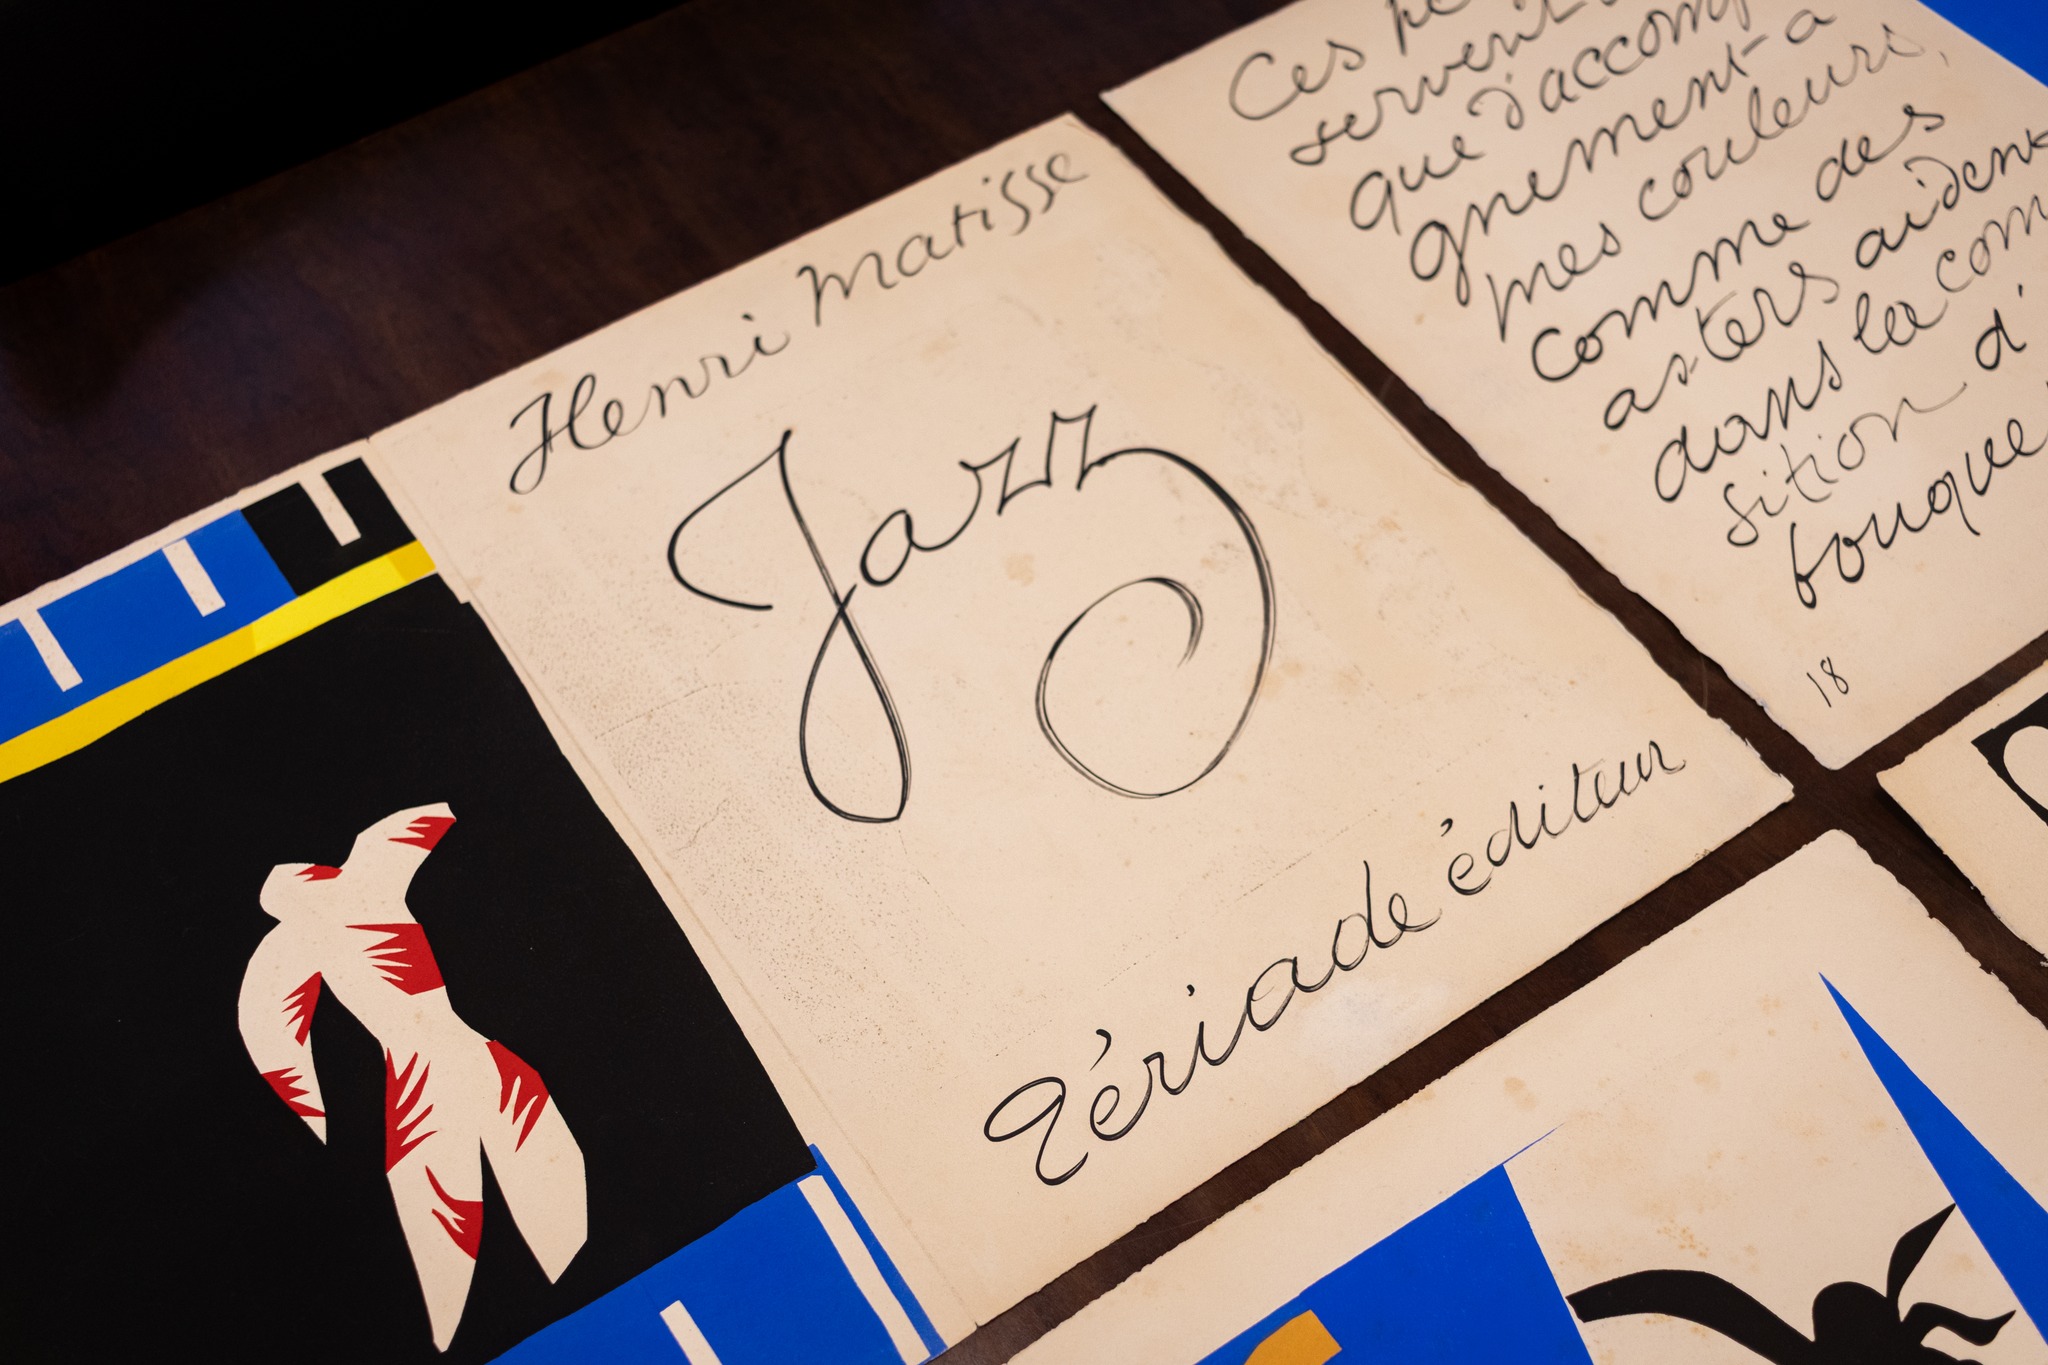 Henri Matisse
Jazz
Tériade éditeur
Ces
servent
que d'accom
gnement à
mes couleurs,
comme des
asters aident
dans la com
sition d'
bouque
18